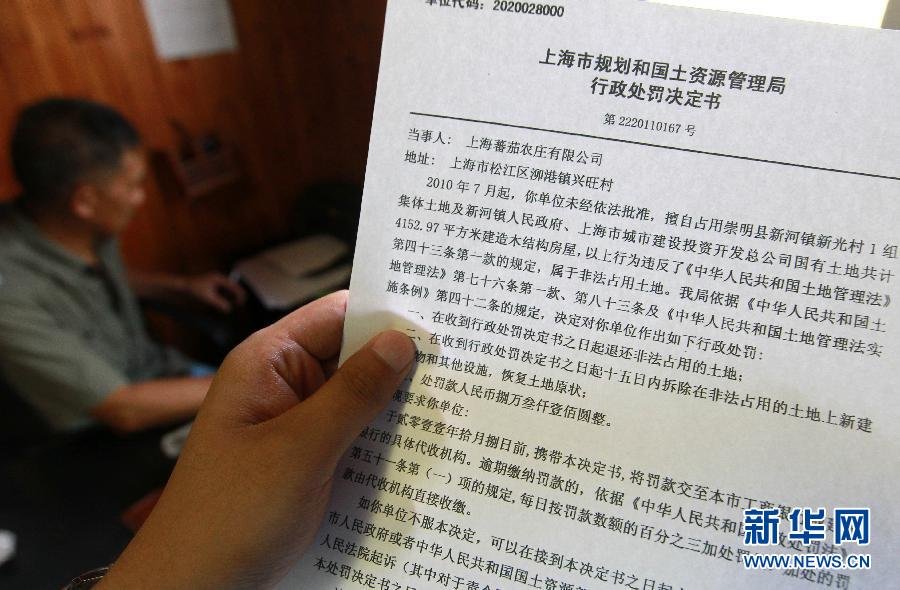 单位代码：2020028000
上海市规划和国土资源管理局
行政处罚决定书
第 2220110167 号
当事人： 上海蕃茄农庄有限公司
地址： 上海市松江区泖港镇兴旺村
2010 年 7 月起，你单位未经依法批准，擅自占用崇明县新河镇新光村 1 组
集体土地及新河镇人民政府、上海市城市建设投资开发总公司国有土地共计
4152.97 平方米建造木结构房屋，以上行为违反了《中华人民共和国土地管理法》
第四十三条第一款的规定，属于非法占用土地。我局依据《中华人民共和国土
地管理法》第七十六条第一款、第八十三条及《中华人民共和国土地管理法实
施条例》第四十二条的规定，决定对你单位作出如下行政处罚：
一、在收到行政处罚决定书之日起退还非法占用的土地；
二、在收到行政处罚决定书之日起十五日内拆除在非法占用的土地上新建
物和其他设施，恢复土地原状；
处罚款人民币捌万叁仟壹佰圆整。
要求你单位：
于贰零壹壹年拾月捌日前，携带本决定书，将罚款交至本市工商银
银行的具体代收机构。逾期缴纳罚款的，依据《中华人民共和国 政处罚法》
第五十一条第（一）项的规定，每日按罚款数额的百分之三加处罚 加处的罚
款由代收机构直接收缴。
如你单位不服本决定，可以在接到本决定书之日起
市人民政府或者中华人民共和国国土资源
人民法院起诉（其中对于责令
本处罚决定书之日
新华网
WWW.NEWS.CN